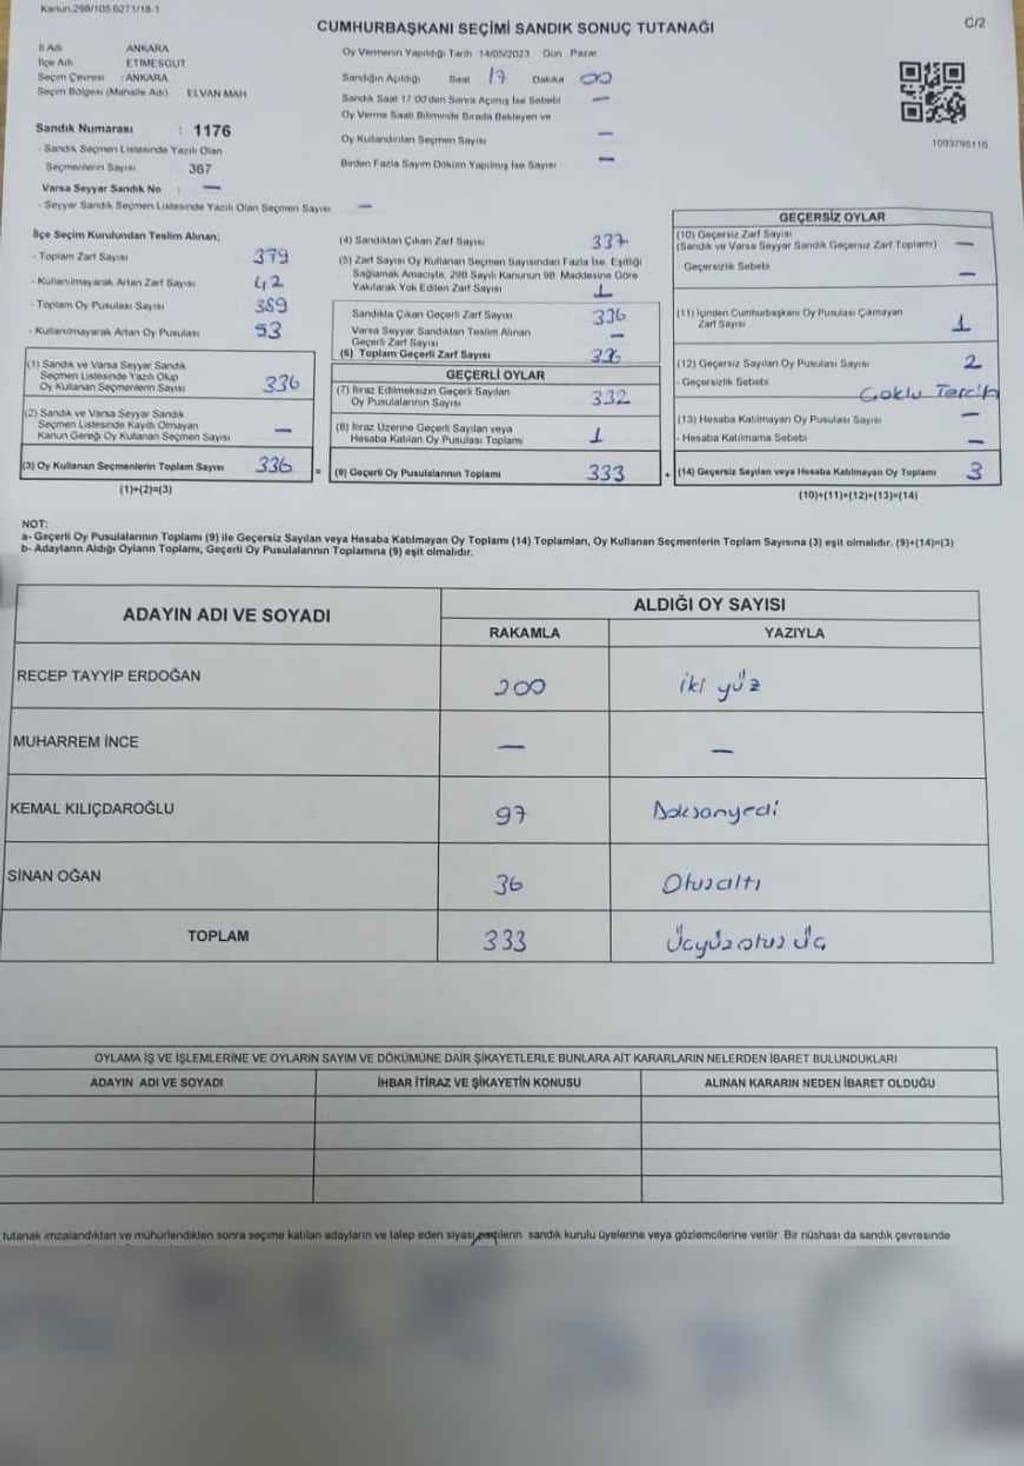 Kanun.298/105.6271/18-1
C/2
CUMHURBAŞKANI SEÇİMİ SANDIK SONUÇ TUTANAĞI
İl Adı ANKARA
İlçe Adı ETİMESGUT
Seçim Çevresi : ANKARA
Seçim Bölgesi (Mahalle Adı) ELVAN MAH
Sandık Numarası : 1176
- Sandık Seçmen Listesinde Yazılı Olan
Seçmenlerin Sayısı 367
Varsa Seyyar Sandık No : —
- Seyyar Sandık Seçmen Listesinde Yazılı Olan Seçmen Sayısı —
Oy Vermenin Yapıldığı Tarih 14/05/2023 Gün Pazar
Sandığın Açıldığı Saat 17 Dakika 00
Sandık Saat 17.00'den Sonra Açılmış İse Sebebi —
Oy Verme Saati Bitiminde Sırada Bekleyen ve
Oy Kullandırılan Seçmen Sayısı —
Birden Fazla Sayım Döküm Yapılmış İse Sayısı —
1093796116
İlçe Seçim Kurulundan Teslim Alınan;
- Toplam Zarf Sayısı 379
- Kullanılmayarak Artan Zarf Sayısı 42
- Toplam Oy Pusulası Sayısı 389
- Kullanılmayarak Artan Oy Pusulası 53
(1) Sandık ve Varsa Seyyar Sandık
Seçmen Listesinde Yazılı Olup
Oy Kullanan Seçmenlerin Sayısı 336
(2) Sandık ve Varsa Seyyar Sandık
Seçmen Listesinde Kaydı Olmayan
Kanun Gereği Oy Kullanan Seçmen Sayısı —
(3) Oy Kullanan Seçmenlerin Toplam Sayısı 336
(1)+(2)=(3)
(4) Sandıktan Çıkan Zarf Sayısı 337
(5) Zarf Sayısı Oy Kullanan Seçmen Sayısından Fazla İse, Eşitliği
Sağlamak Amacıyla, 298 Sayılı Kanunun 98. Maddesine Göre
Yakılarak Yok Edilen Zarf Sayısı 1
Sandıkta Çıkan Geçerli Zarf Sayısı 336
Varsa Seyyar Sandıktan Teslim Alınan
Geçerli Zarf Sayısı —
(6) Toplam Geçerli Zarf Sayısı 336
GEÇERLİ OYLAR
(7) İtiraz Edilmeksizin Geçerli Sayılan
Oy Pusulalarının Sayısı 332
(8) İtiraz Üzerine Geçerli Sayılan veya
Hesaba Katılan Oy Pusulası Toplamı 1
= (9) Geçerli Oy Pusulalarının Toplamı 333
GEÇERSİZ OYLAR
(10) Geçersiz Zarf Sayısı
(Sandık ve Varsa Seyyar Sandık Geçersiz Zarf Toplamı) —
Geçersizlik Sebebi —
(11) İçinden Cumhurbaşkanı Oy Pusulası Çıkmayan
Zarf Sayısı 1
(12) Geçersiz Sayılan Oy Pusulası Sayısı 2
- Geçersizlik Sebebi Çoklu Tercih
(13) Hesaba Katılmayan Oy Pusulası Sayısı —
- Hesaba Katılmama Sebebi —
+ (14) Geçersiz Sayılan veya Hesaba Katılmayan Oy Toplamı 3
(10)+(11)+(12)+(13)=(14)
NOT:
a- Geçerli Oy Pusulalarının Toplamı (9) ile Geçersiz Sayılan veya Hesaba Katılmayan Oy Toplamı (14) Toplamları, Oy Kullanan Seçmenlerin Toplam Sayısına (3) eşit olmalıdır. (9)+(14)=(3)
b- Adayların Aldığı Oyların Toplamı, Geçerli Oy Pusulalarının Toplamına (9) eşit olmalıdır.
ADAYIN ADI VE SOYADI
ALDIĞI OY SAYISI
RAKAMLA YAZIYLA
RECEP TAYYİP ERDOĞAN 200 iki yüz
MUHARREM İNCE — —
KEMAL KILIÇDAROĞLU 97 Doksanyedi
SİNAN OĞAN 36 Otuzaltı
TOPLAM 333 Üçyüzotuz üç
OYLAMA İŞ VE İŞLEMLERİNE VE OYLARIN SAYIM VE DÖKÜMÜNE DAİR ŞİKAYETLERLE BUNLARA AİT KARARLARIN NELERDEN İBARET BULUNDUKLARI
ADAYIN ADI VE SOYADI İHBAR İTİRAZ VE ŞİKAYETİN KONUSU ALINAN KARARIN NEDEN İBARET OLDUĞU
tutanak imzalandıktan ve mühürlendikten sonra seçime katılan adayların ve talep eden siyasi partilerin sandık kurulu üyelerine veya gözlemcilerine verilir. Bir nüshası da sandık çevresinde